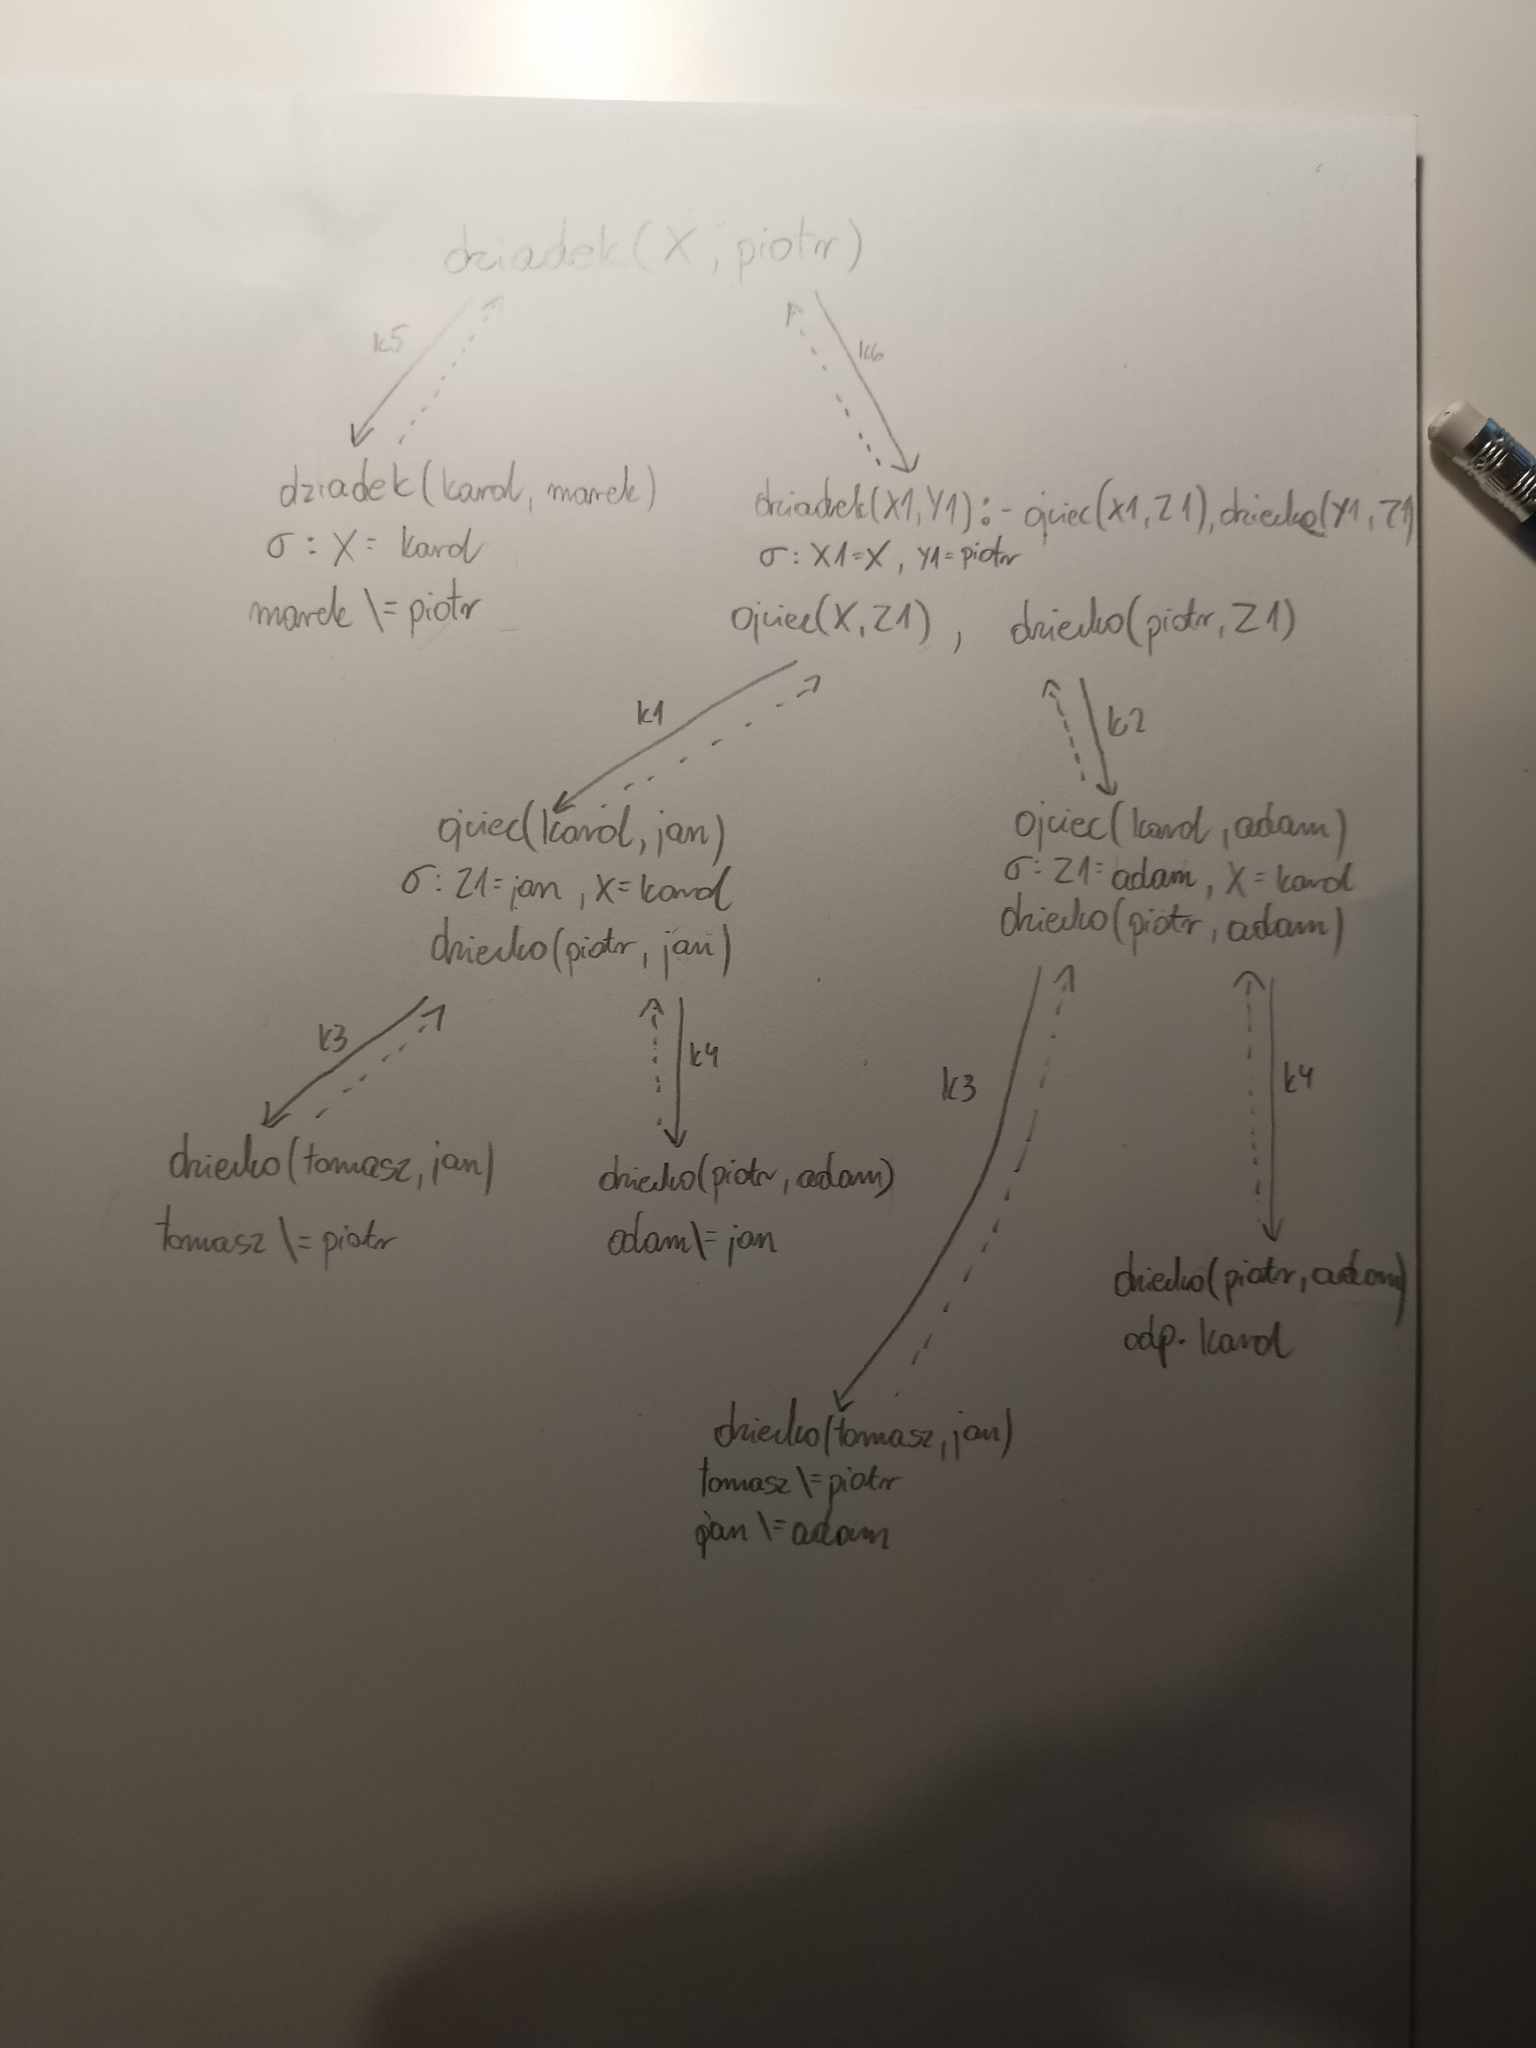 dziadek(X, piotr)
k5
k6
dziadek(karol, marek)
σ: X = karol
marek \= piotr
dziadek(X1, Y1) :- ojciec(X1, Z1), dziecko(Y1, Z1)
σ: X1=X, Y1=piotr
ojciec(X, Z1), dziecko(piotr, Z1)
k1
k2
ojciec(karol, jan)
σ: Z1=jan, X=karol
dziecko(piotr, jan)
ojciec(karol, adam)
σ: Z1=adam, X=karol
dziecko(piotr, adam)
k3
k4
k3
k4
dziecko(tomasz, jan)
tomasz \= piotr
dziecko(piotr, adam)
adam \= jan
dziecko(piotr, adam)
odp. karol
dziecko(tomasz, jan)
tomasz \= piotr
jan \= adam